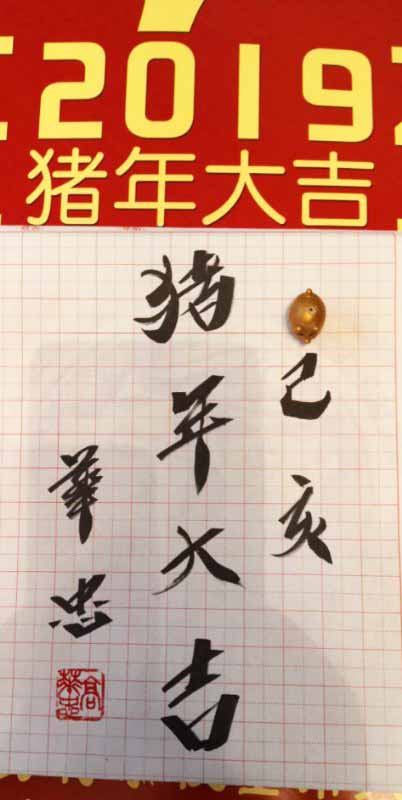 2019
猪年大吉
己亥
猪年大吉
華忠